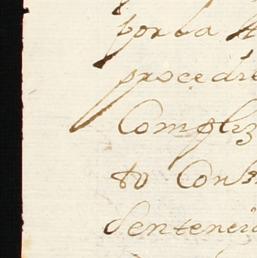 por la
procedie
Compliz
to Cons
Sentenci